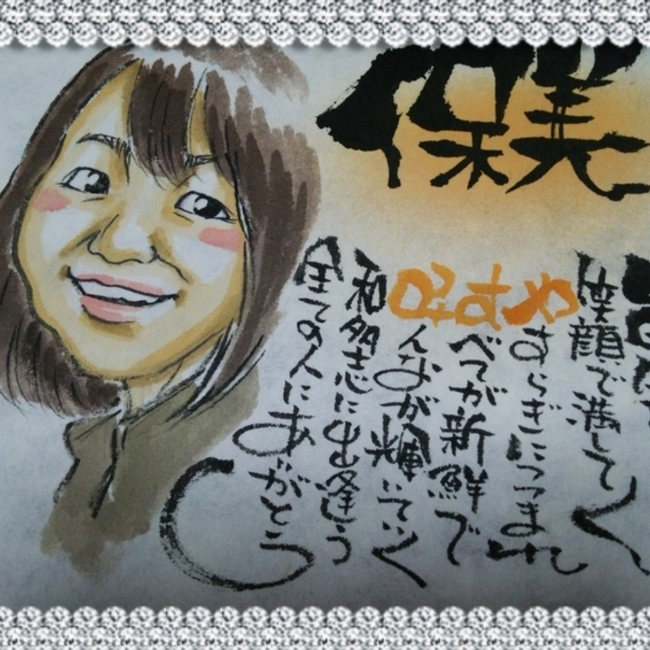 保美
笑顔で満してく
やすらぎにつつまれ
すべてが新鮮で
みんなが輝いていく
和多志に出逢う
全ての人にありがとう